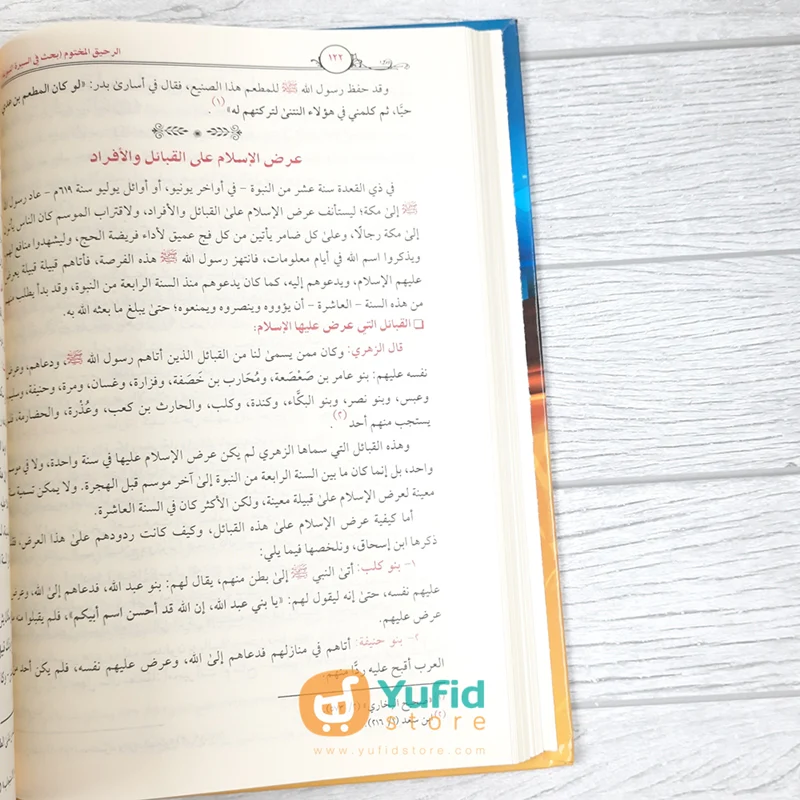 ١٢٢
الرحيق المختوم (بحث في السيرة النبوية
وقد حفظ رسول الله ﷺ للمطعم هذا الصنيع، فقال في أسارى بدر: «لو كان المطعم بن عدي
حيًّا، ثم كلمني في هؤلاء النتنى لتركتهم له»(١).
عرض الإسلام على القبائل والأفراد
في ذي القعدة سنة عشر من النبوة - في أواخر يونيو، أو أوائل يوليو سنة ٦١٩م - عاد رسول الله
ﷺ إلى مكة؛ ليستأنف عرض الإسلام على القبائل والأفراد، ولاقتراب الموسم كان الناس يأتون
إلى مكة رجالًا، وعلى كل ضامر يأتين من كل فج عميق لأداء فريضة الحج، وليشهدوا منافع لهم
ويذكروا اسم الله في أيام معلومات، فانتهز رسول الله ﷺ هذه الفرصة، فأتاهم قبيلة قبيلة يعرض
عليهم الإسلام، ويدعوهم إليه، كما كان يدعوهم منذ السنة الرابعة من النبوة، وقد بدأ يطلب منهم
من هذه السنة - العاشرة - أن يؤووه وينصروه ويمنعوه؛ حتى يبلغ ما بعثه الله به.
❑ القبائل التي عرض عليها الإسلام:
قال الزهري: وكان ممن يسمى لنا من القبائل الذين أتاهم رسول الله ﷺ، ودعاهم، وعرض
نفسه عليهم: بنو عامر بن صَعْصَعة، ومُحَارب بن خَصَفة، وفزارة، وغسان، ومرة، وحنيفة، وسليم
وعبس، وبنو نصر، وبنو البكَّاء، وكندة، وكلب، والحارث بن كعب، وعُذْرة، والحضارمة،
يستجب منهم أحد(٢).
وهذه القبائل التي سماها الزهري لم يكن عرض الإسلام عليها في سنة واحدة، ولا في موسم
واحد، بل إنما كان ما بين السنة الرابعة من النبوة إلى آخر موسم قبل الهجرة. ولا يمكن تسمية سنة
معينة لعرض الإسلام على قبيلة معينة، ولكن الأكثر كان في السنة العاشرة.
أما كيفية عرض الإسلام على هذه القبائل، وكيف كانت ردودهم على هذا العرض، فقد
ذكرها ابن إسحاق، ونلخصها فيما يلي:
١- بنو كلب: أتى النبي ﷺ إلى بطن منهم، يقال لهم: بنو عبد الله، فدعاهم إلى الله، وعرض
عليهم نفسه، حتى إنه ليقول لهم: «يا بني عبد الله، إن الله قد أحسن اسم أبيكم»، فلم يقبلوا منه ما
عرض عليهم.
٢- بنو حنيفة: أتاهم في منازلهم فدعاهم إلى الله، وعرض عليهم نفسه، فلم يكن أحد من
العرب أقبح عليه ردًّا منهم.
صحيح البخاري
(٢) ابن سعد (٢١٦/١).
Yufid
store
www.yufidstore.com